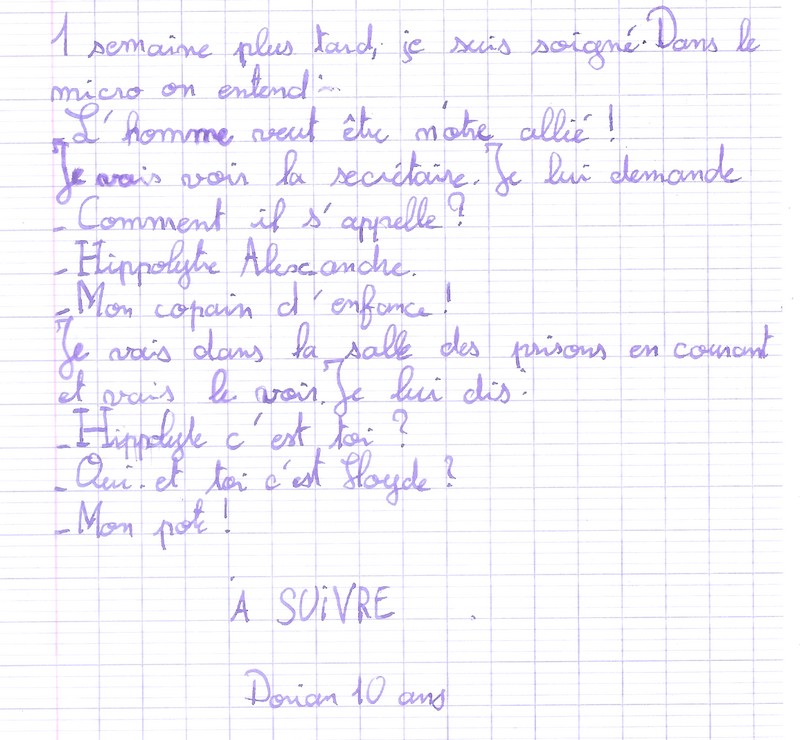 1 semaine plus tard, je suis soigné. Dans le
micro on entend :
- L'homme veut être nôtre allié !
Je vais voir la secrétaire. Je lui demande
- Comment il s'appelle ?
- Hippolyte Alexandre.
- Mon copain d'enfance !
Je vais dans la salle des prisons en courant
et vais le voir. Je lui dis :
- Hippolyte c'est toi ?
- Oui. et toi c'est Floyde ?
- Mon pote !
À SUiVRE
Dorian 10 ans